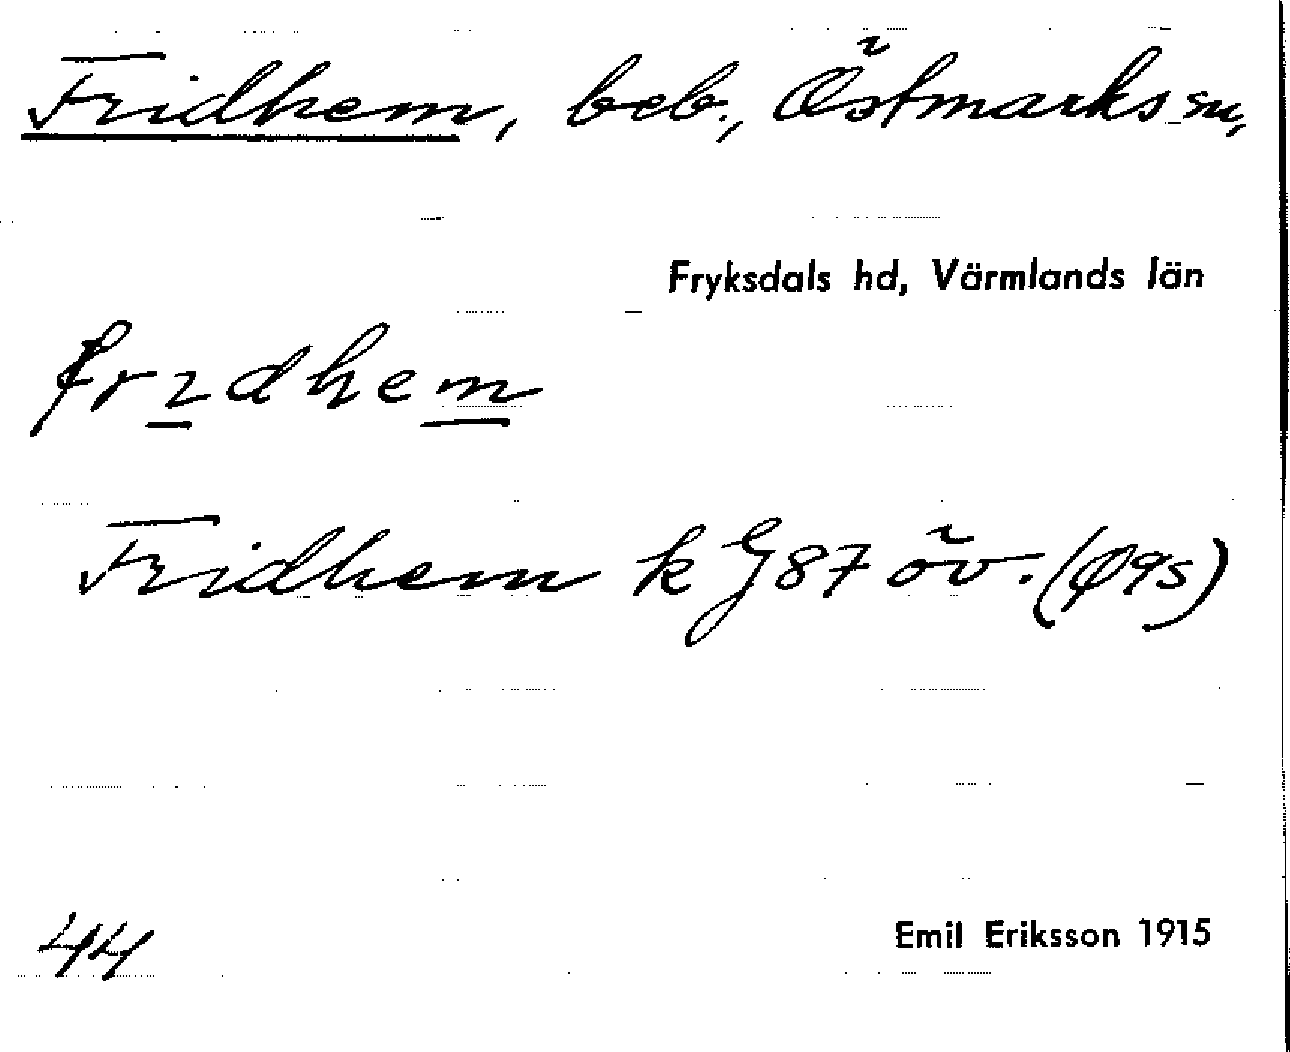 Fridhem, beb., Östmarks sn,
Fryksdals hd, Värmlands län
fridhem
Fridhem k G87 öv. (Ø9s)
44
Emil Eriksson 1915